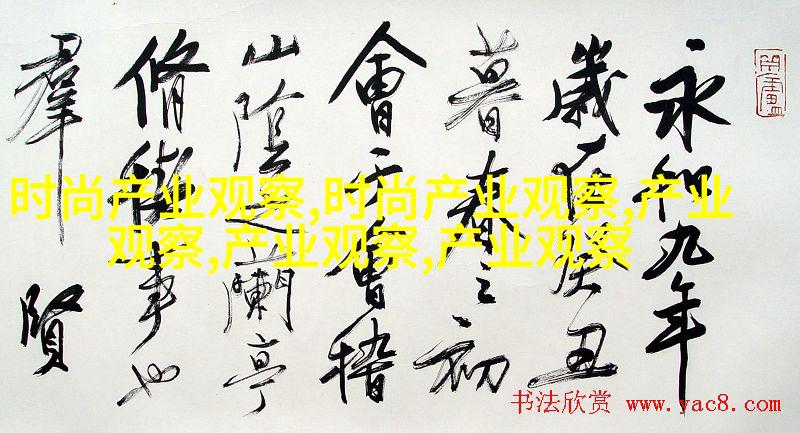 永和九年
歲在癸丑
暮春之初
會于會稽
山陰之蘭亭
脩禊事也
羣賢
时尚产业观察,时尚产业观察,产业
观察,产业观察,产业观察
书法欣赏 www.yac8.com